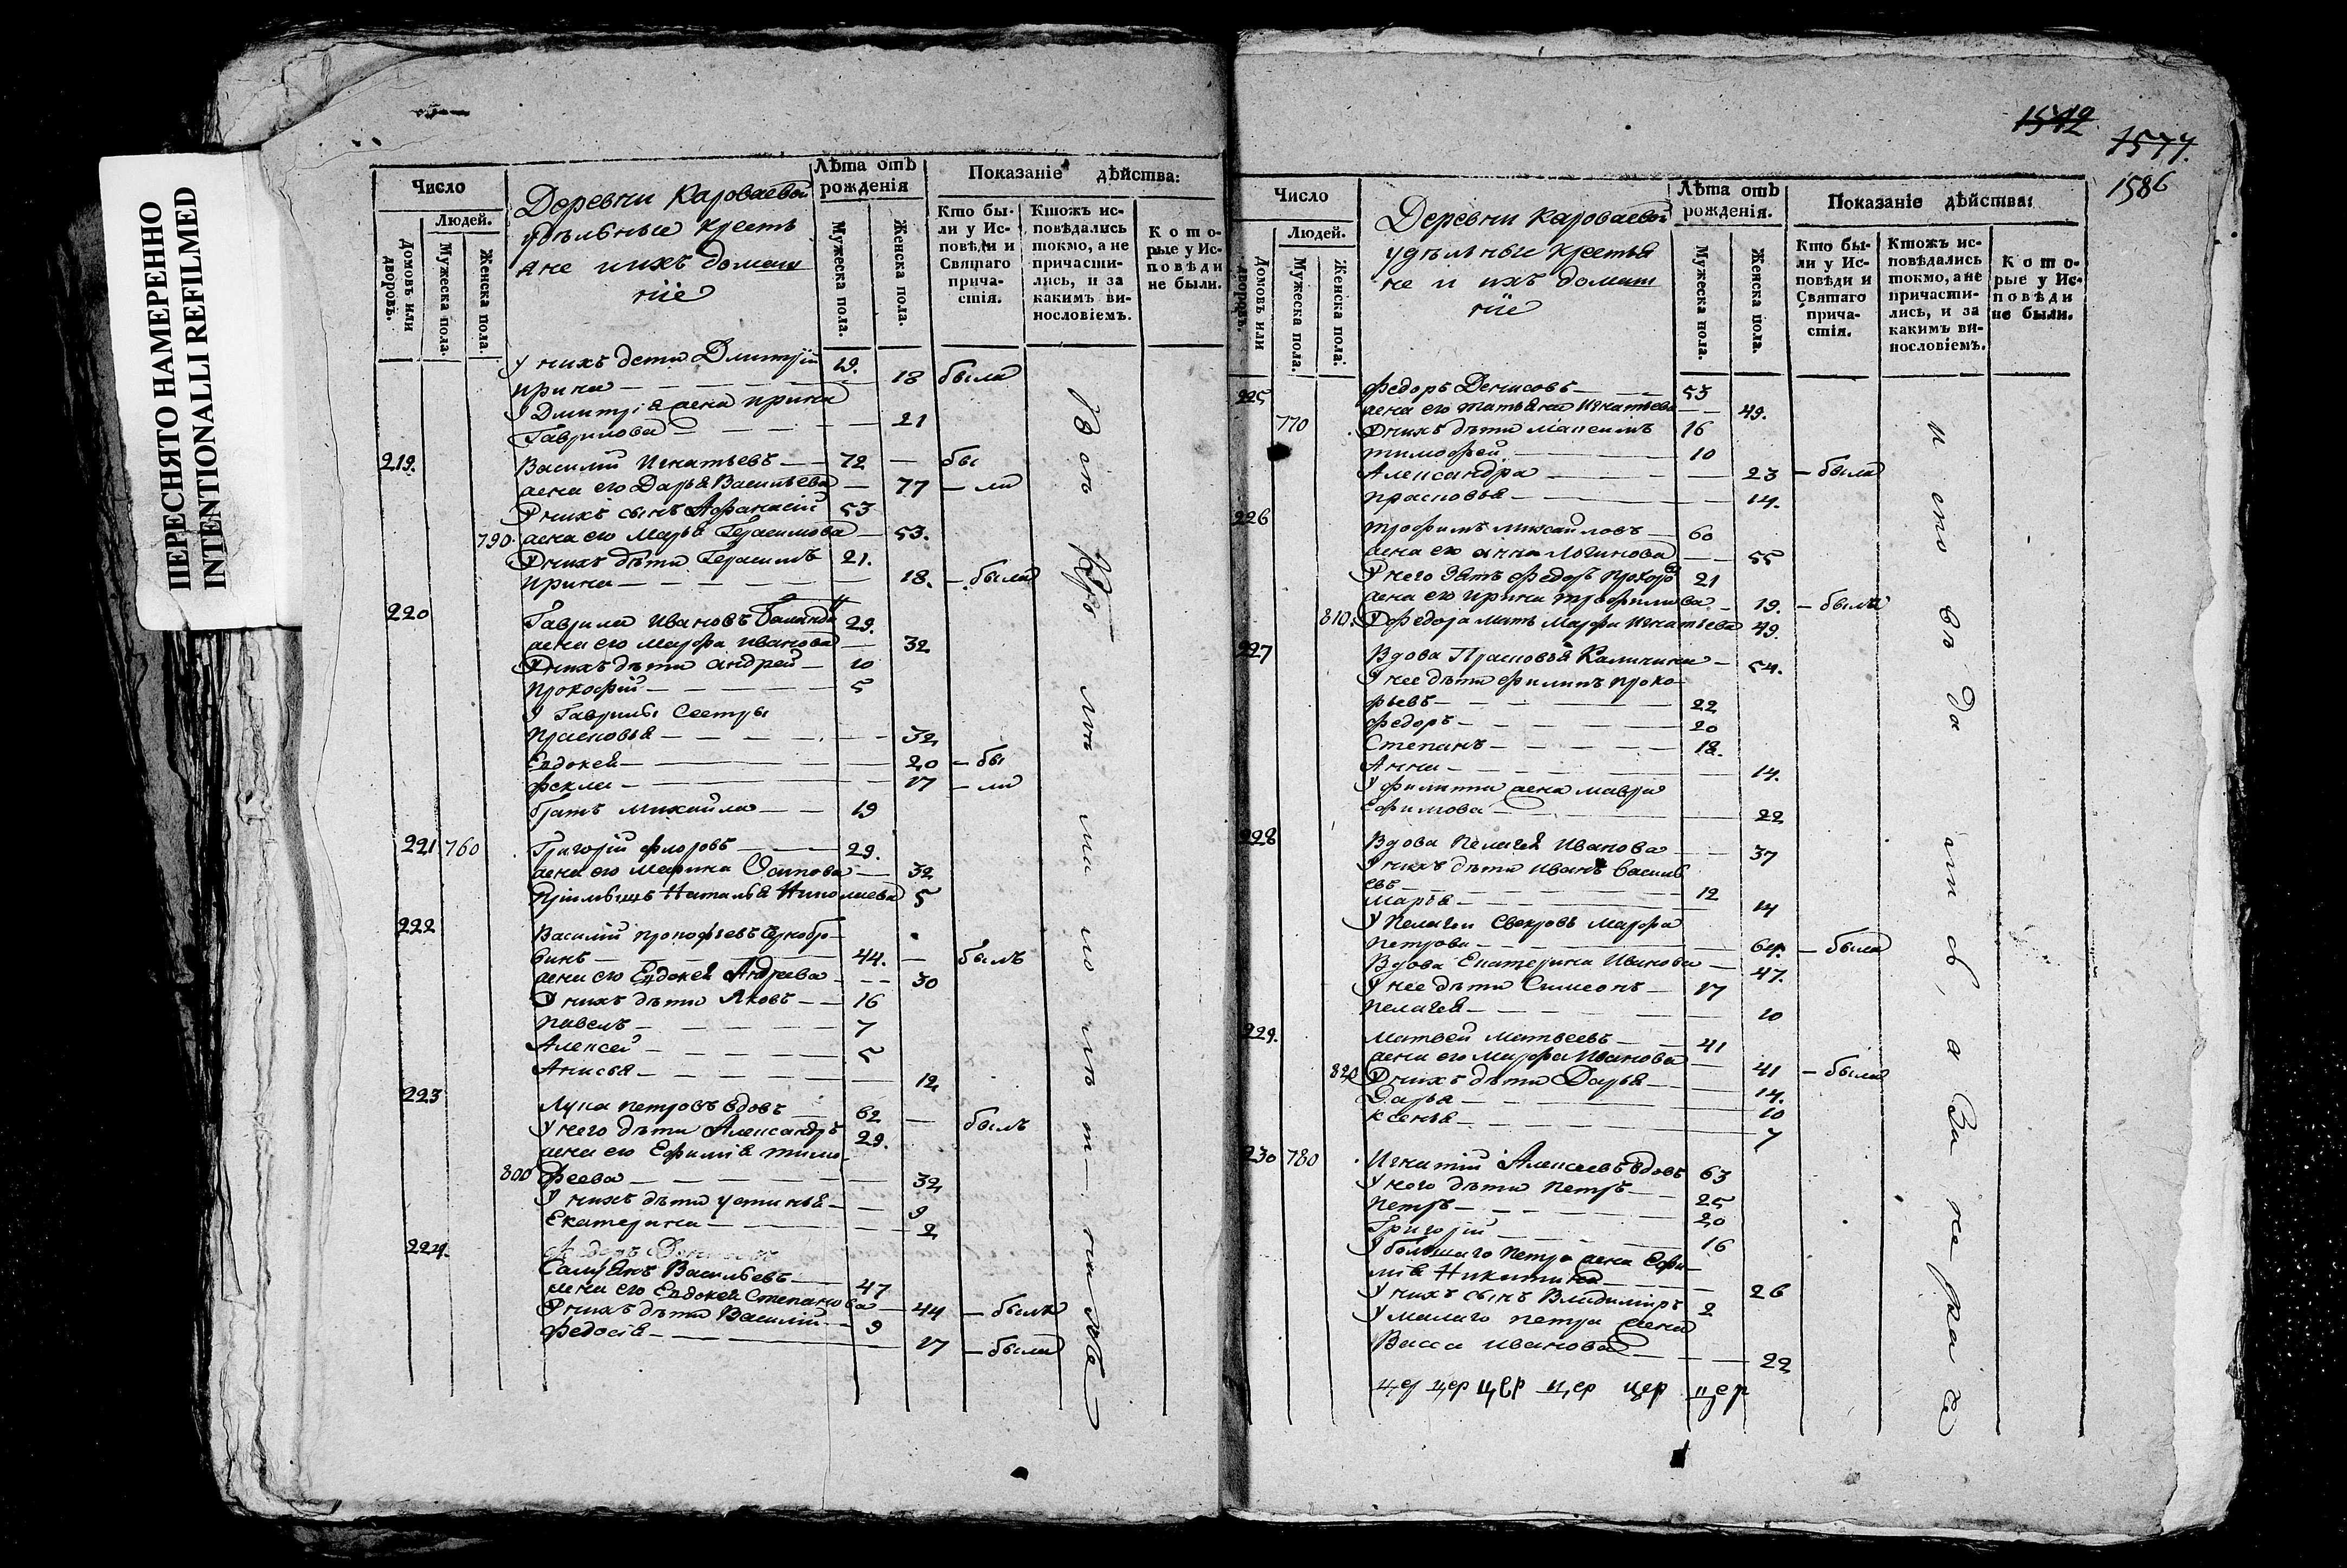 ПЕРЕСНЯТО НАМЕРЕННО
INTENTIONALLI REFILMED
Число
Людей.
Домовъ или дворовъ.
Мужеска пола.
Женска пола.
Деревни Кароваевой
удѣльные кресть
яне и ихъ домаш
ніе
Лѣта отъ рожденія
Мужеска пола.
Женска пола.
Показаніе дѣйства:
Кто бы-
ли у Ис-
повѣди и
Святаго
прича-
стія.
Ктожъ ис-
повѣдались
токмо, а не
причасти-
лись, и за
какимъ ви-
нословіемъ.
Кото-
рые у Ис-
повѣди
не были.
У нихъ дети Дмитрій 19.
Ирина 18 были
У Дмитрія жена Ирина
Гаврилова 21
219. Василій Игнатьевъ 72 бы
жена его Дарья Васильева 77 ли
У нихъ сынъ Афанасій 53
790. жена его Марья Герасимова 53.
У нихъ дѣти Герасимъ 21.
Ирина 18. были
220 Гаврила Ивановъ 29.
жена его Марфа Иванова 32
У нихъ дѣти Андрей 10
Прокофій 5
У Гаврилы сестры
Прасковья 32
Евдокея 20 бы
Фекла 17 ли
братъ Михайла 19
221 760 Григорій Флоровъ 29.
жена его Марина Осипова 32
Наталья Николаева 5
222 Василій Прокофьевъ
винъ 44. былъ
жена его Евдокея Андреева 30
У нихъ дѣти Яковъ 16
Павелъ 7
Алексей 5
Анисья 12
223 Лука Петровъ вдовъ 62 былъ
У него дѣти Александръ 29.
жена его Ефимія Тимо
800 феева 32
У нихъ дѣти Устинья 9
Екатерина 2
224.
Васильевъ 47
жена его Евдокея Степанова 44 были
У нихъ дѣти Василій 9
Федосія 17 были
1542
1577.
1586
Число
Людей.
Домовъ или дворовъ.
Мужеска пола.
Женска пола.
Деревни Кароваевой
удѣльные крестья
не и ихъ домаш
ніе
Лѣта отъ рожденія.
Мужеска пола.
Женска пола.
Показаніе дѣйства:
Кто бы-
ли у Ис-
повѣди и
Святаго
прича-
стія.
Ктожъ ис-
повѣдались
токмо, а не
причасти-
лись, и за
какимъ ви-
нословіемъ.
Кото-
рые у Ис-
повѣди
не были.
225 Федоръ Денисовъ 53
жена его Татьяна Игнатьева 49.
770 У нихъ дѣти Максимъ 16
Тимофей 10
Александра 23 были
Прасковья 14.
226 Трофимъ Михайловъ 60
жена его Анна Логинова 55
У него зять Федоръ 21
жена его Ирина Трофимова 19. были
810. У Федора мать Марфа Игнатьева 49.
227 Вдова Прасковья Калинина 54.
У нее дѣти Филипъ Проко
фьевъ 22
Федоръ 20
Степанъ 18.
Анна 14.
У Филипа жена Мавра
Ефимова 22
228 Вдова Пелагея Иванова 37
У нихъ дѣти Иванъ Василь
евъ 12
Марья 14
У Пелагеи свекровь Марфа
Петрова 64. была
Вдова Екатерина Иванова 47.
У нее дѣти Симеонъ 17
Пелагея 10
229. Матвей Матвеевъ 41
жена его Марфа Иванова 41 были
820 У нихъ дѣти Дарья 14.
Дарья 10
Ксенья 7
230 780 Игнатій Алексеевъ вдовъ 63
У него дѣти Петръ 25
Петръ 20
Григорій 16
У большаго Петра жена Ефи
мія Никитина 26
У нихъ сынъ Владимиръ 2
У малаго Петра жена
Васса Иванова 22
цер цер цер цер цер цер